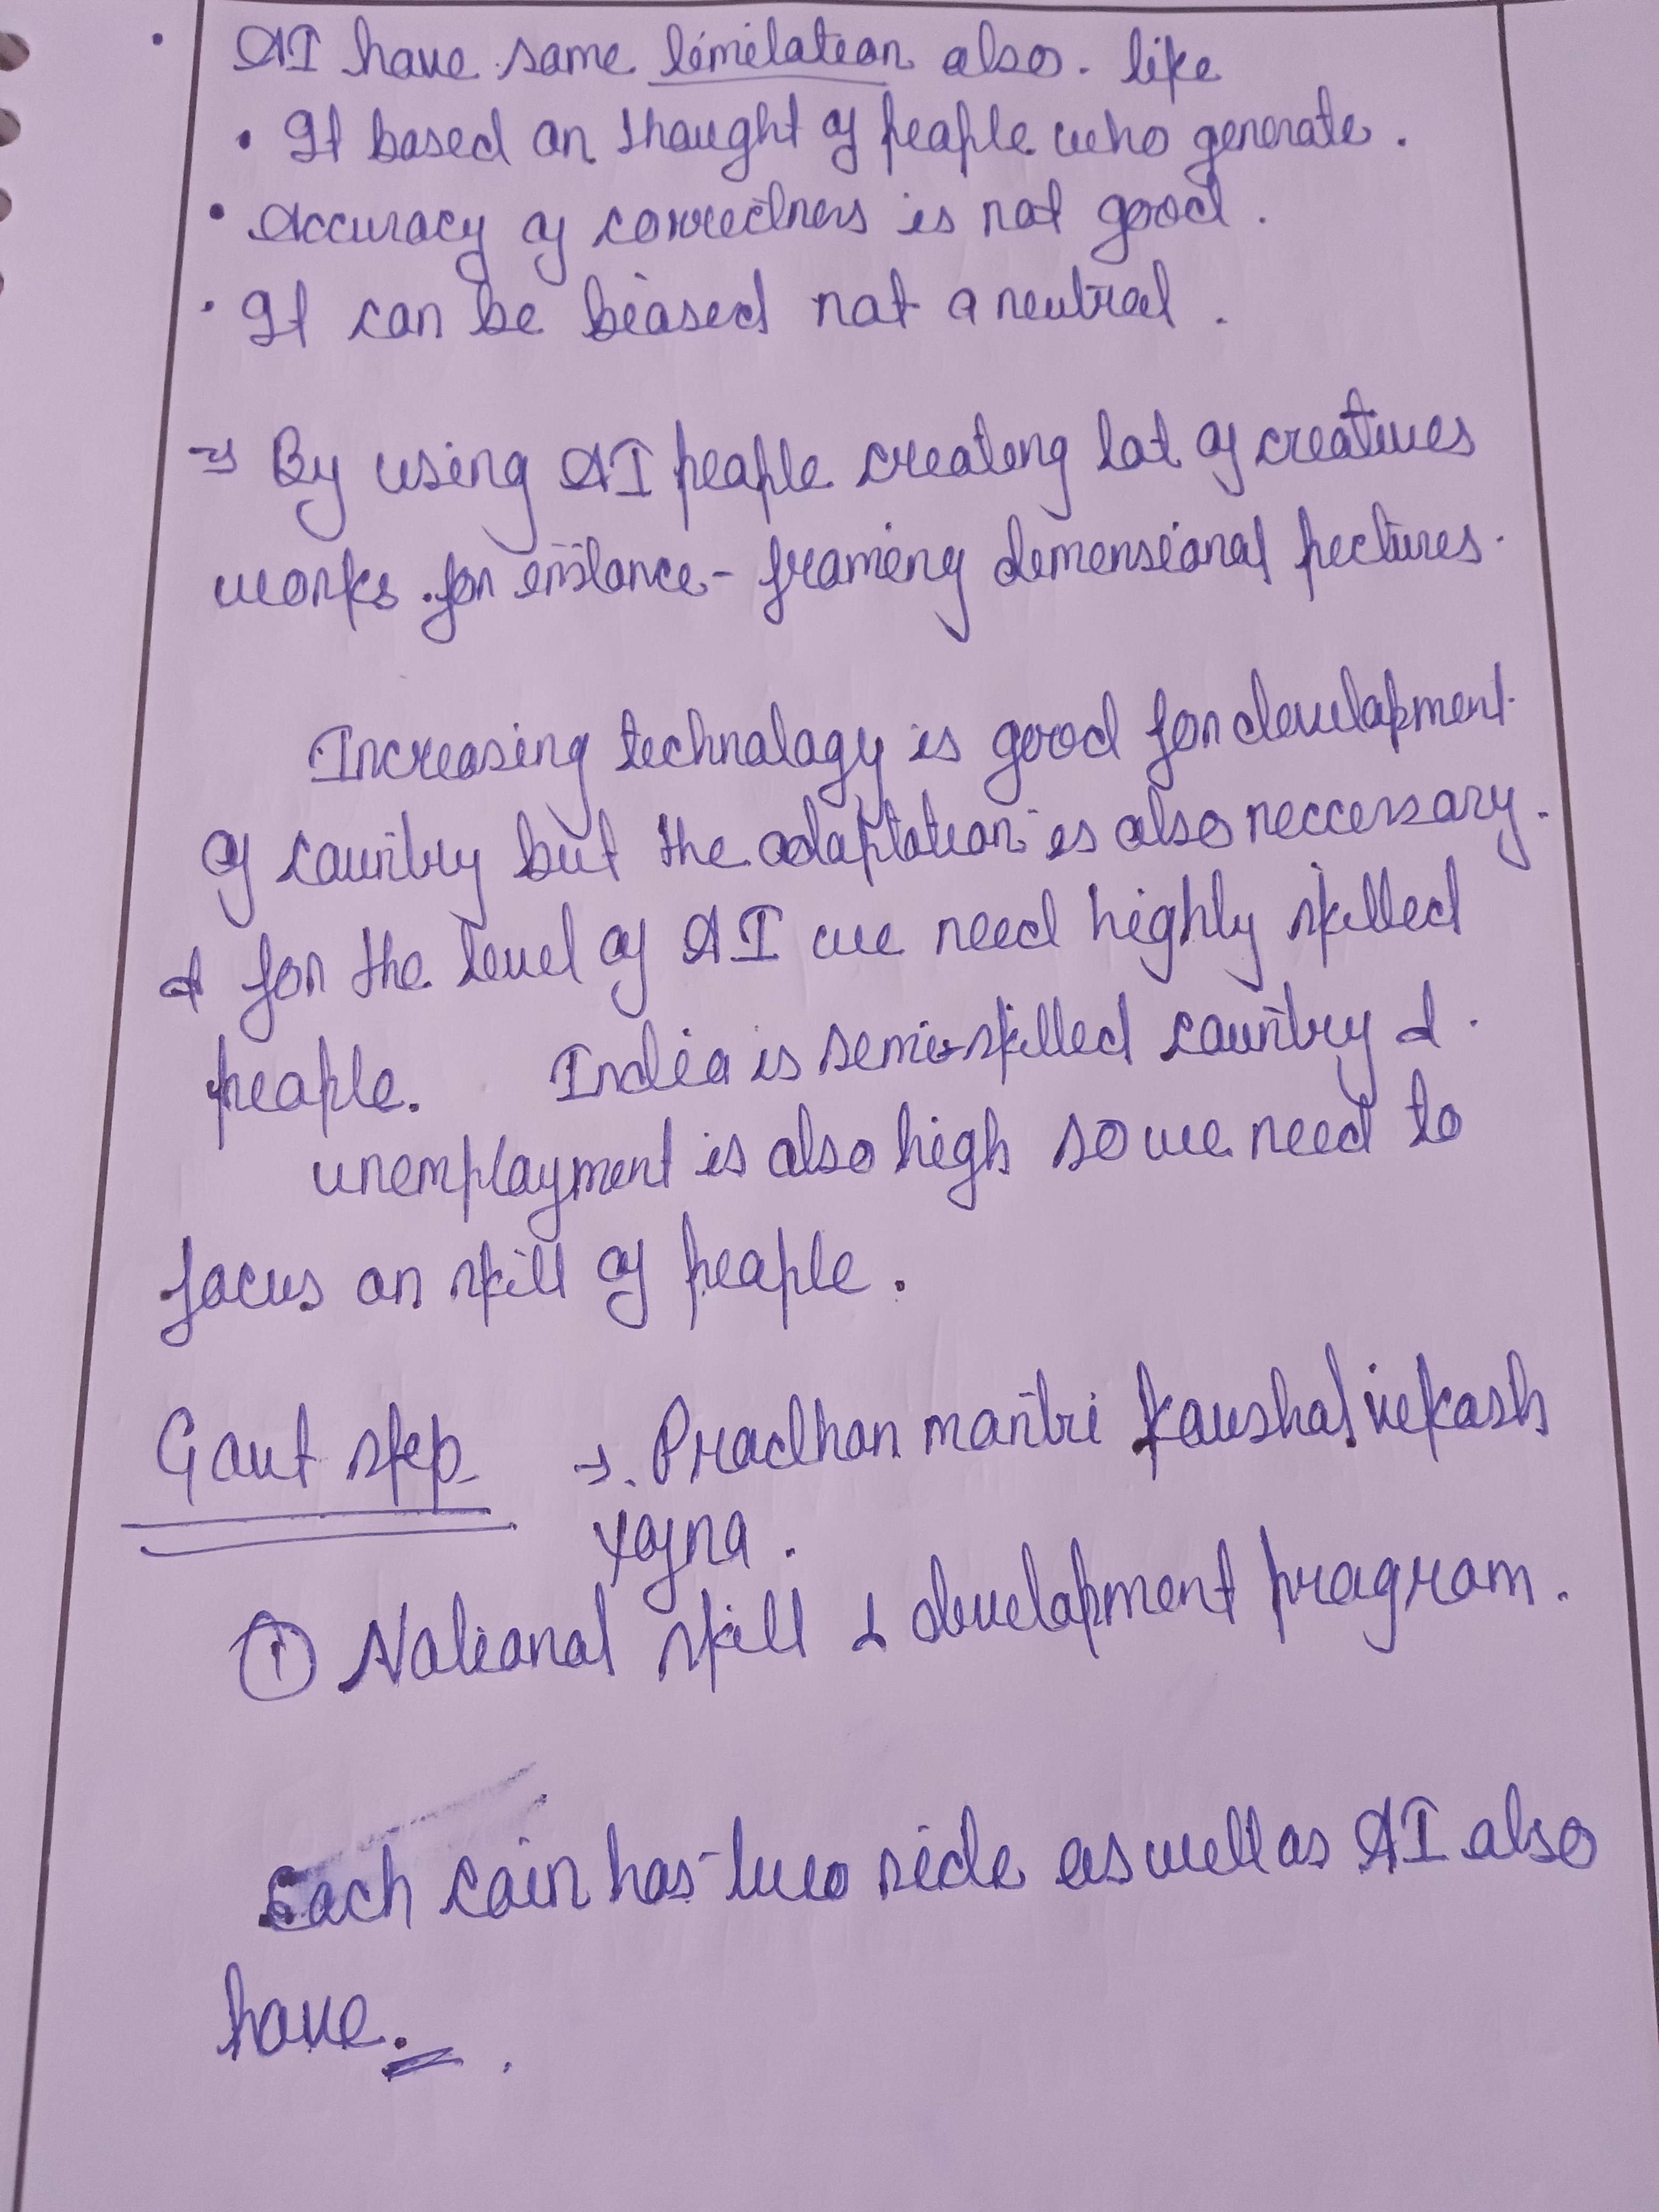 • AI have some limitation also. like
• It based on thought of people who generate.
• Accuracy of correctness is not good.
• It can be biased not a neutral.
⇒ By using AI people creating lot of creatives
works. for instance - framing dimensional pictures.
Increasing technology is good for development
of country but the adaptation is also neccessary.
& for the level of AI we need highly skilled
people. India is semi-skilled country &
unemployment is also high so we need to
focus on skill of people.
Govt step → Pradhan mantri kaushal vikash
Yojna.
① National skill & development program.
Each coin has two side as well as AI also
have.